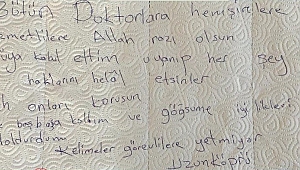 Bütün Doktorlara hemşirelere
Allah razı olsun
kabul ettim uyanıp her şey
haklarını helâl etsinler
onları korusun
başbaşa kaldım ve göğsüme iyilikleri
doldurdum
Kelimeler görevlilere yetmiyor
Uzunköprü